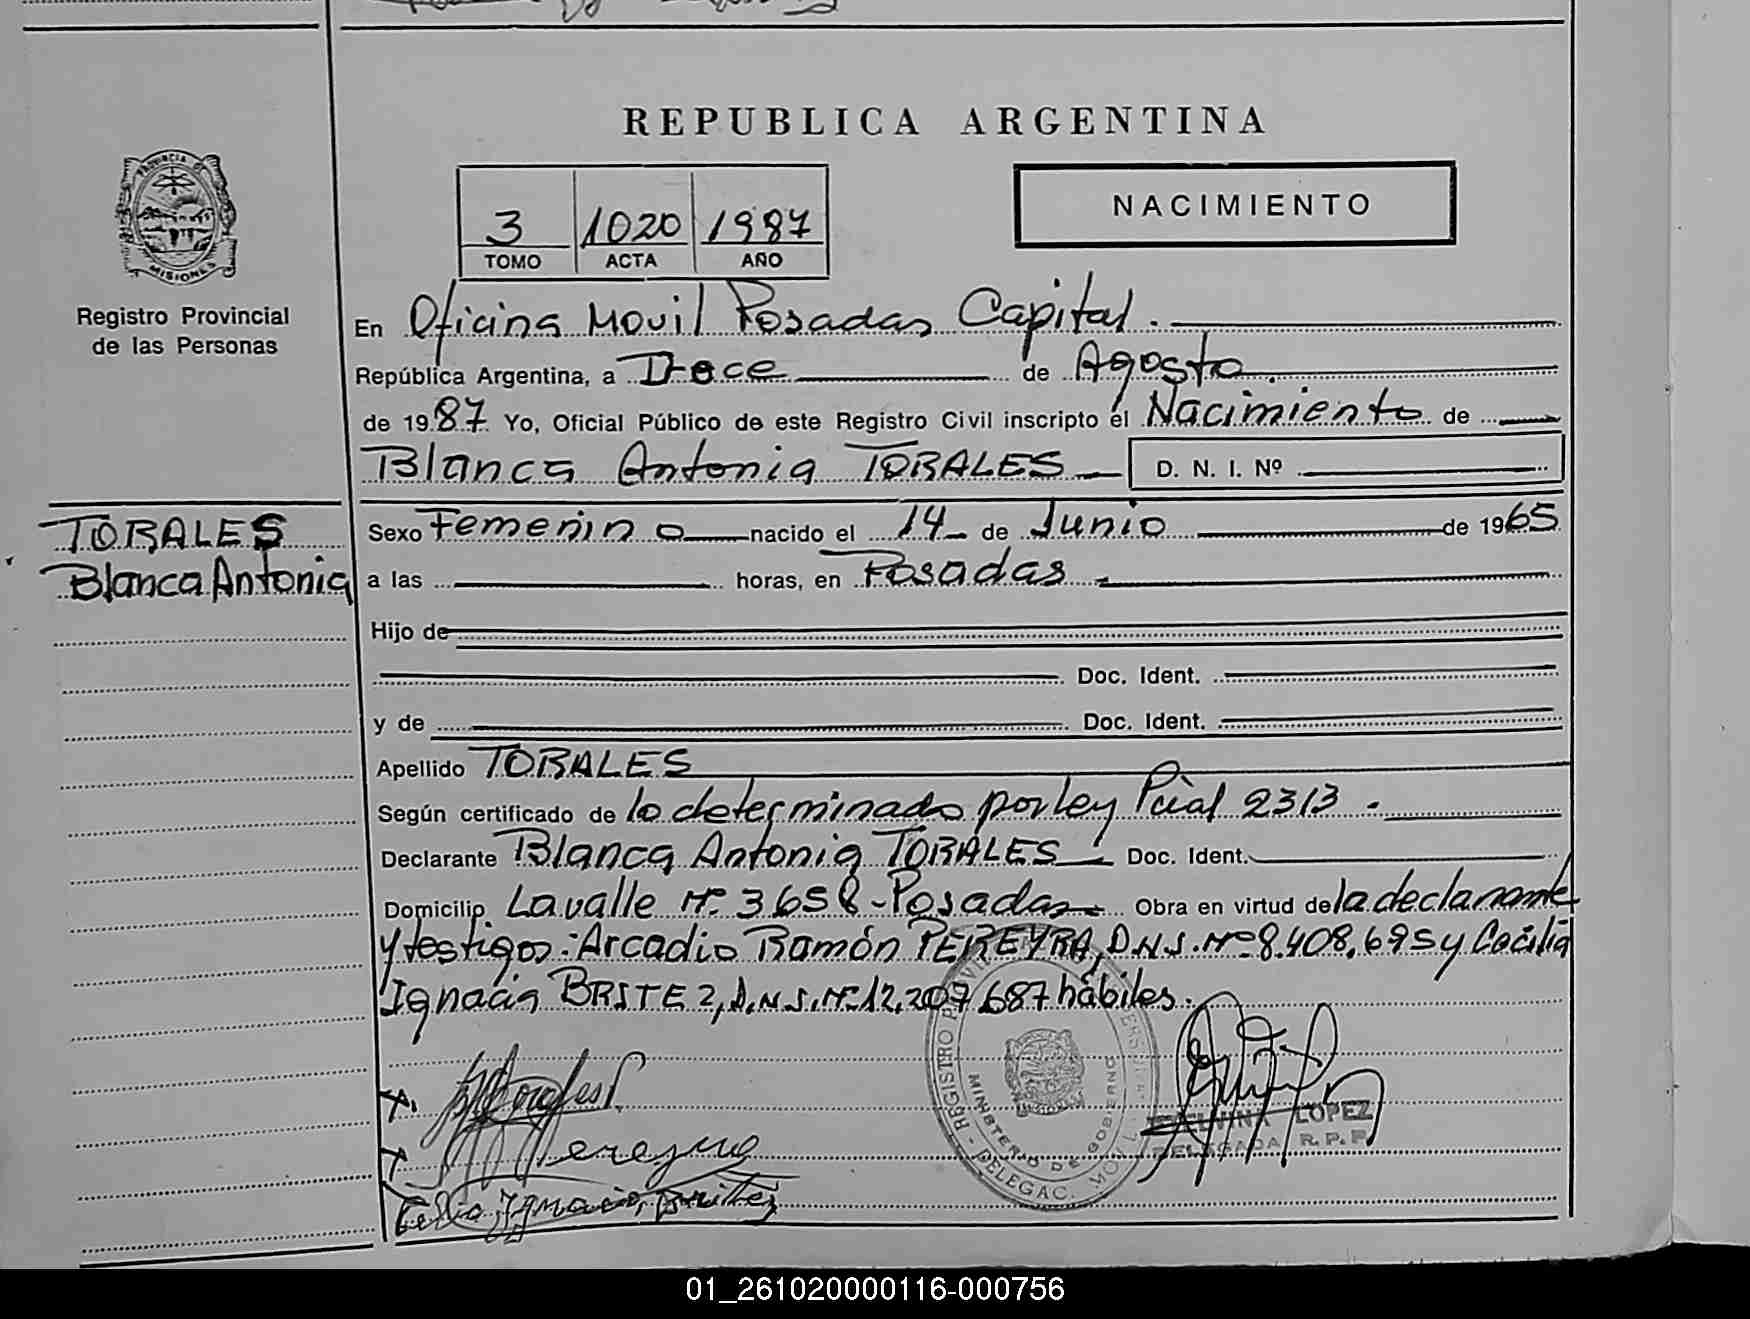 REPUBLICA ARGENTINA
PROVINCIA DE
MISIONES
Registro Provincial
de las Personas
3 1020 1987
TOMO ACTA AÑO
NACIMIENTO
En Oficina Movil Posadas Capital.
República Argentina, a Doce de Agosto
de 1987 Yo, Oficial Público de este Registro Civil inscripto el Nacimiento de
Blanca Antonia TORALES D. N. I. Nº
TORALES
Blanca Antonia
Sexo Femenino nacido el 14 de Junio de 1965
a las horas, en Posadas
Hijo de
Doc. Ident.
y de Doc. Ident.
Apellido TORALES
Según certificado de lo determinado por ley Pcial 2313.
Declarante Blanca Antonia TORALES Doc. Ident.
Domicilio Lavalle Nº 3658 - Posadas Obra en virtud de la declarante
y testigos: Arcadio Ramón PEREYRA, D.N.I. Nº 8.408.695 y
Ignacia D.N.I. Nº 12.207.687 hábiles.
REGISTRO
MINISTERIO DE GOBIERNO
DELEGAC.
LOPEZ
DELEGADA R.P.P.
01_261020000116-000756